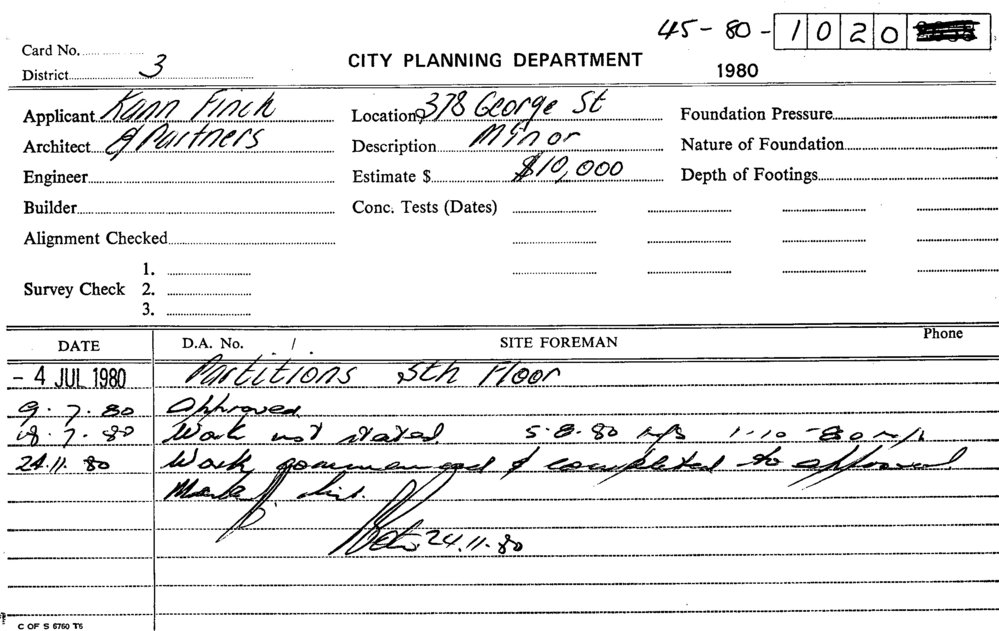 45 - 80 - 1020
Card No.
District 3
CITY PLANNING DEPARTMENT
1980
Applicant Kann Finch
Location 378 George St
Foundation Pressure
Architect & Partners
Description Minor
Nature of Foundation
Engineer
Estimate $ $10,000
Depth of Footings
Builder
Conc. Tests (Dates)
Alignment Checked
Survey Check
1.
2.
3.
DATE
D.A. No. / .
SITE FOREMAN
Phone
- 4 JUL 1980 Partitions 5th Floor
9.7.80 Approved
18.7.80 Work not stated 5.8.80 n/s 1-10-80 n/s
24.11.80 Work commenced & completed to approval
24.11.80
C OF S 6760 T6